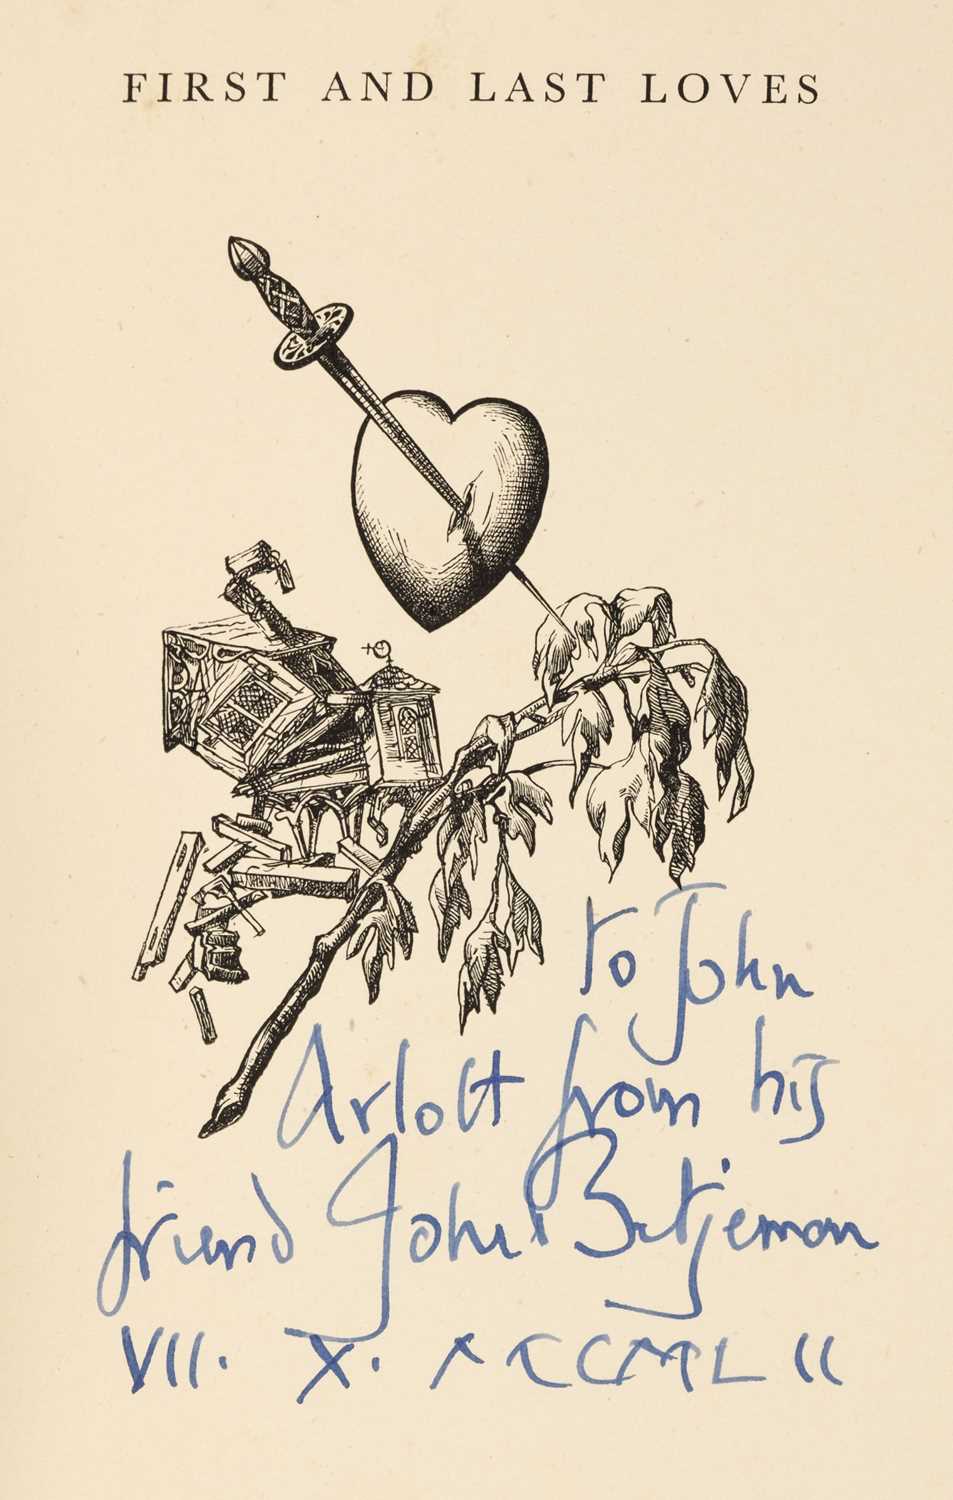 FIRST AND LAST LOVES
to John
Arlott from his
friend John Betjeman
VII. X. MCCMLII